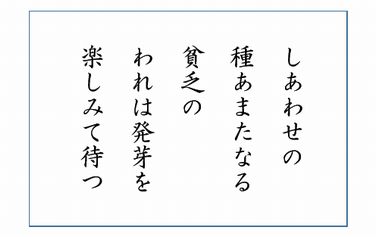 しあわせの
種あまたなる
貧乏の
われは発芽を
楽しみて待つ